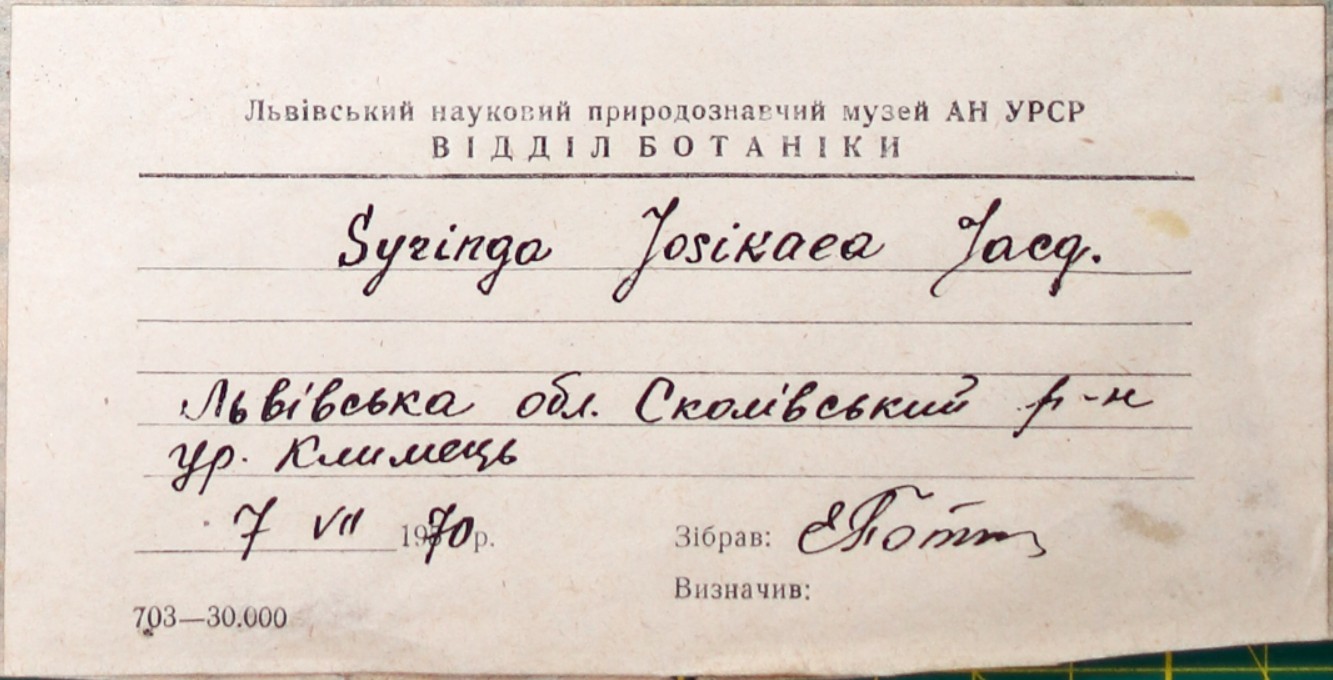 Львівський науковий природознавчий музей АН УРСР
ВІДДІЛ БОТАНІКИ
Syringa Josikaea Jacq.
Львівська обл. Сколівський р-н
ур. Климець
7 VII 1970 р.
Зібрав:
Визначив:
703—30.000